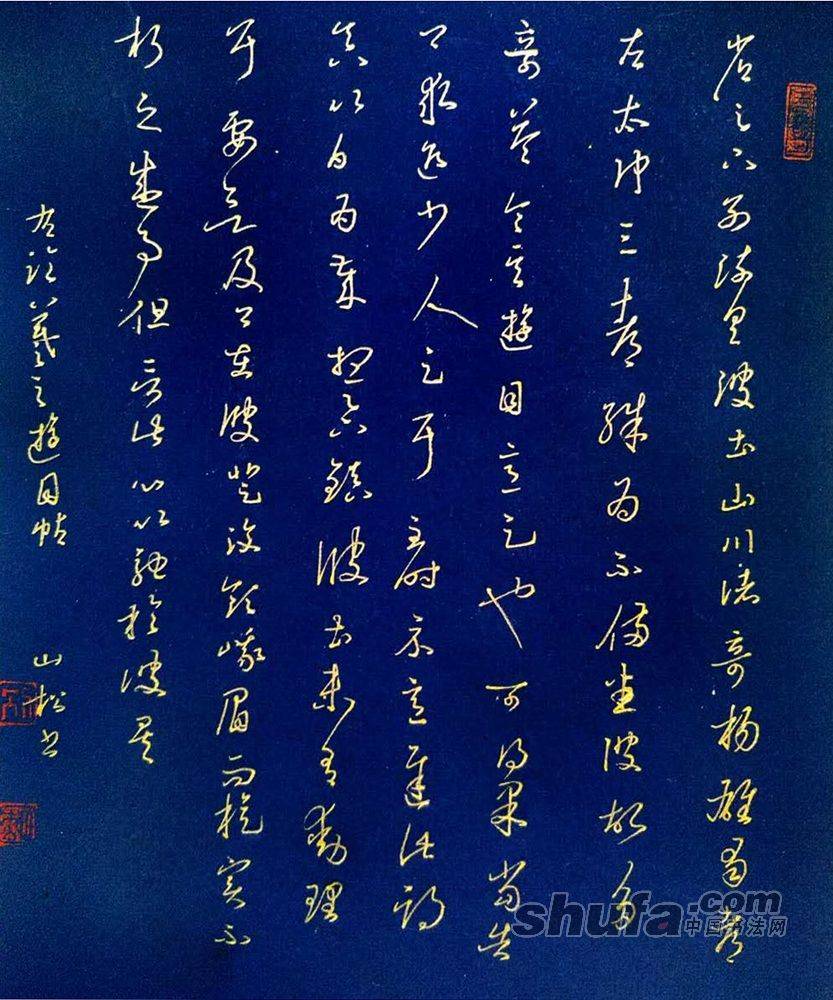 省足下别疏具彼土山川諸奇揚雄蜀都
左太冲三都殊为不備悉彼故多
奇益令其遊目意足也可得果當告
卿求迎少人足耳至時示意遲此期
真以日为歲想足下鎮彼土未有動理
耳要欲及卿在彼登汶領峨眉而旋實不
朽之盛事但言此心以馳於彼矣
右臨羲之遊目帖 山松書
shufa.com
中国书法网